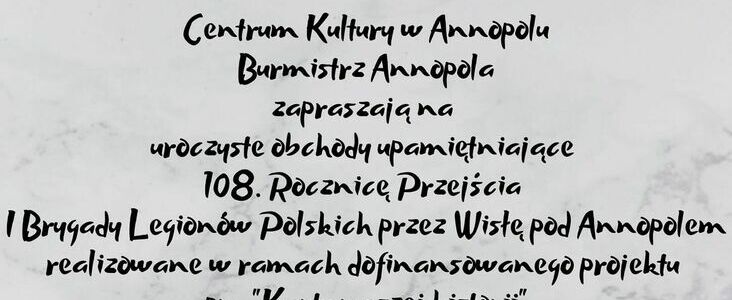 Centrum Kultury w Annopolu
Burmistrz Annopola
zapraszają na
uroczyste obchody upamiętniające
108. Rocznicę Przejścia
I Brygady Legionów Polskich przez Wisłę pod Annopolem
realizowane w ramach dofinansowanego projektu